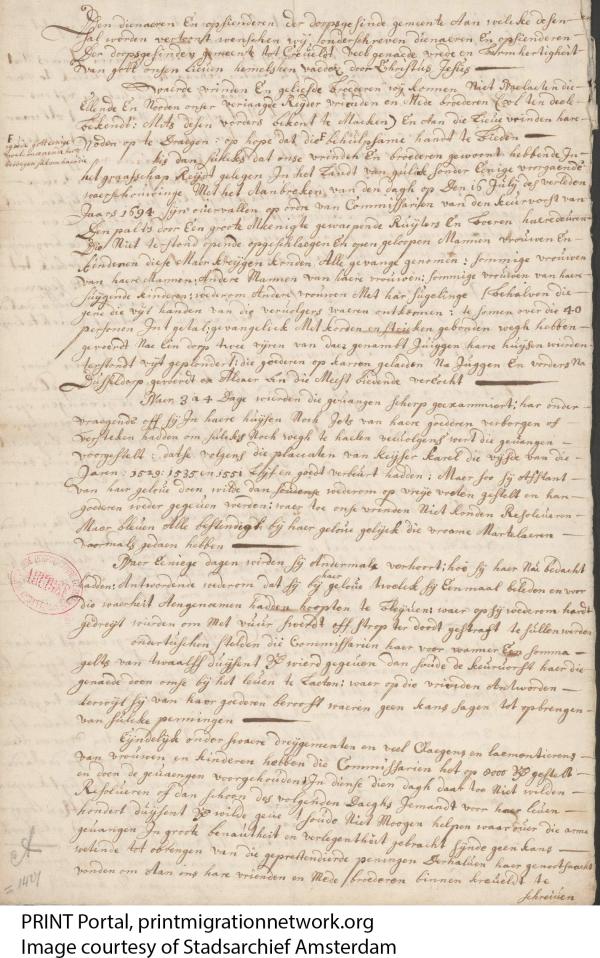 Den dienaeren En opsienderen der doopsgesinde gemeente Aan welcke desen
sal worden verthoont wenschen wij onderschreven dienaeren En opsienderen
Der doopsgesinden gemeente tot Creijeldt veel genaede vrede en Barmhertigheit
van godt onsen Lieven hemelschen vaeder door Christus Jesus
Waerde vrinden En geliefde broederen wij konnen Niet
Ellende En Nooden onser verjaagde vrienden en Mede broederen
bekendt: Mits desen vorders bekent te Maecken) En Aan die Lieve vrinden hare
Nooden op te Draegen: op hope dat die behulpsame handt te Bieden
is dan sulcks dat onse vrinden En broederen gewoont hebbende In
het graafschap gelegen In het Landt van gulick sonder Eenige voorgaende
waerschouwinge Met het Aanbreken van den dagh op Den 16 Julij des verleden
Jaars 1694 sijn overvallen op ordre van Commissarisen van den keurvorst van
Den palts door Een groote Meenigte gewaepende Ruijters En Boeren haere deuren
Die Niet terstond opende opgeslaegen En open geloopen Mannen vrouwen En
kinderen diese Maer krijgen konden Alle gevange genomen: sommige vrouwen
van haere Mannen: Andere Mannen van haere vrouwen: sommige vrouwen van haere
suijgende kinderen: wederom Andere vrouwen Met haer suijgelinge (behalven die
gene die uijt handen van die vervolgers waeren ontkomen: te somen over die 40
personen Int getal: gevangelick Met koorden en stricken gebonden wegh hebben
gevoerdt Nae Een dorp twee uijren van daer genamt Juijggen haere huijsen wierden
terstondt uijt geplondert: die goederen op karren gelaeden Na Juijggen En vorders Na
Dusseldorp gevoerdt en Aldaer aen die Meest biedende verkocht
Naer 3 a 4 Dage wierden die gevangen scherp geexammineert: haer onder
vraegende off sij In haere huijsen Noch Iets van haere goederen verborgen of
versteken hadden om sulcks Noch wegh te haelen vervolgens wert die gevangen
voorgestelt: datse volgens die placcaten van keijser karel die vijfde van die
Jaren: 1529: 1535 en 1551 Lijf en goedt verbeurt hadden: Maer soo sij Afstant
van haer geloue doen wilde dan soudense wederom op vrije voeten gestelt en haer
goederen weder gegeven werden: waer toe onse vrinden Niet konden Resolveeren
Maer bleven Alle bestendigh bij haer geloue gelijck die vroome Martelaeren
voormals gedaen hebben
Naer Eenige dagen wirden sij Andermals verhoort: hoe sij haer Nae bedacht
hadden: Antwoordende wederom dat sij bij haer geloue twelck sij Eenmaal beleden en voor
die waerheit Aengenomen hadden hoopten te blijven: waer op sij wederom hardt
gedreijgt wurden om Met vuur swerdt off strop ter doodt gestraft te sullen werden
ondertusschen stelden die Commissarien haer voor wanneer Een somma
gelts van twaalff duijsent wierd gegeven dan soude de keurvorst haer die
genaede doen omse bij het leven te Laeten: waer op die vrienden Antworden
terwijl sij van haer goederen berooft waeren geen kans sagen tot opbrengen
van sulcke penningen
Eijndelijk onder swaere dreijgementen en veel Claegens en laementierens
van vrouwen en kinderen hebben die Commissarien het op 8000 gestelt
en doen de gevangen voorgehouden: In dien se dien dagh daer toe Niet wilden
Resolveren of dan schoon des volgenden daeghs Jemandt voor haer leven
hondert duijsent wilde geve t soude Niet Moogen helpen waer over die arme
gevangen In groote benautheit en verlegentheit gebracht sijnde geen kans
wetende tot obtengen van die gepretendierde penningen Derhalven haer genootsaeckt
vonden om Aan ons hare vrienden en Mede broederen binnen kreuvelt te
schreiven
A
= 1421
PRINT Portal, printmigrationnetwork.org
Image courtesy of Stadsarchief Amsterdam